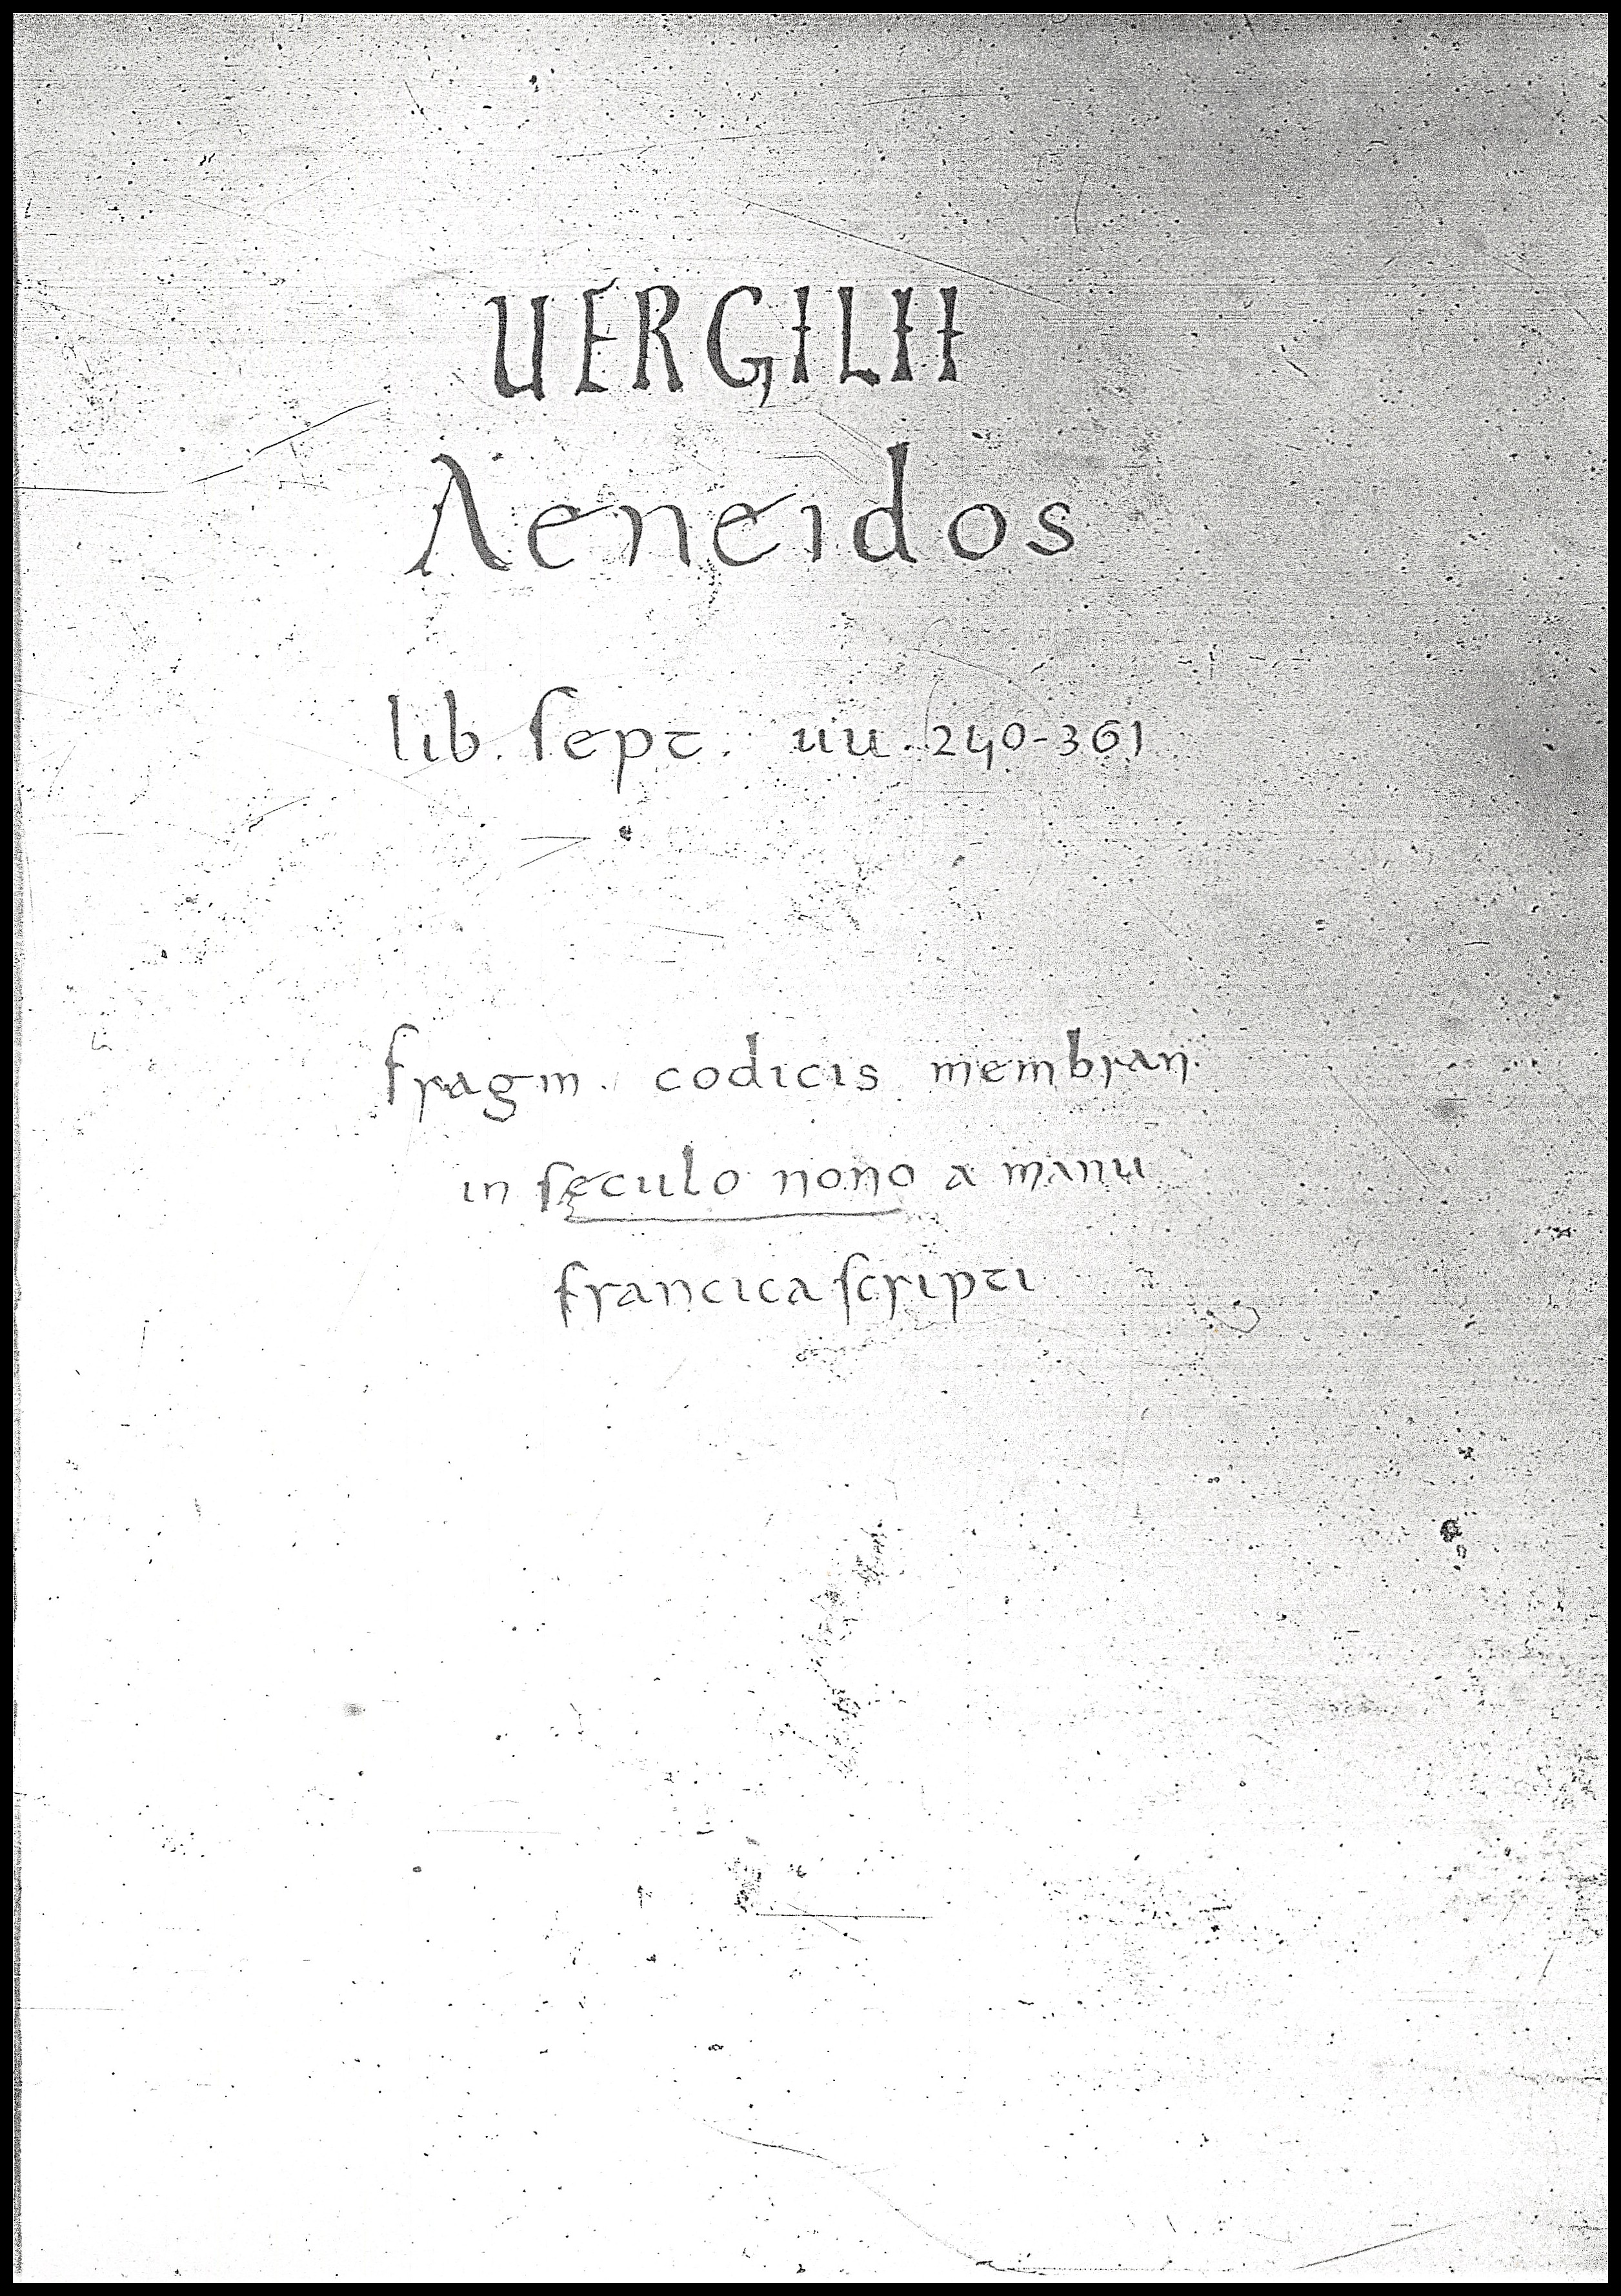 UERGILII
Aeneidos
lib. sept. uu. 240-361
fragm. codicis membran.
in seculo nono a manu
francica scripti